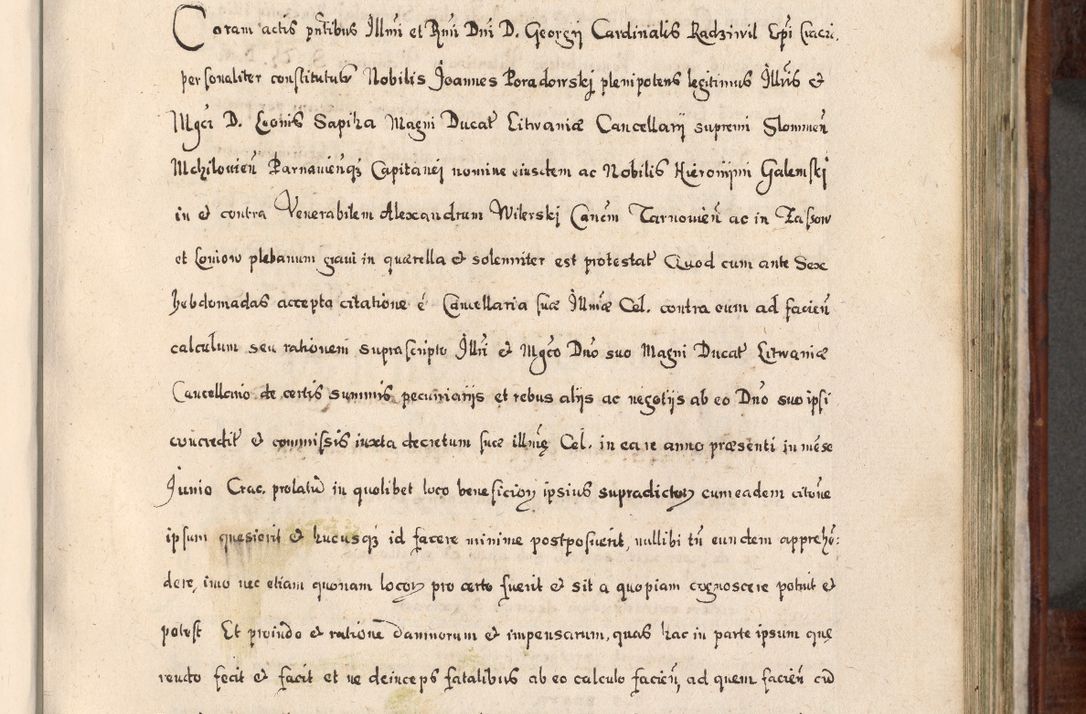 Coram actis pñtibus Illmi et Rmi Dni D. Georgij Cardinalis Radziwil Epi Cracñ.
personaliter constitutus Nobilis Joannes Poradowskj plenipotens legitimus Illris et
Mgci D. Leonis Sapiha Magni Ducat Litwaniæ Cancellarij supremi Slonimeñ
Mchilovieñ Parnavieñqʒ Capitanej nomine eiusdem ac Nobilis Hieronijmi Galemskj
in et contra Venerabilem Alexandrum Wilerskj Canem Tarnovieñ ac in Zassow
et Loniow plebanum gravi in quærella et solenniter est protestat Quod cum ante Sex
hebdomadas accepta citatione é Cancellaria suæ Illmæ Cel. contra eum ad facieñ
calculum seu rationem suprascripto Illri et Mgco Dno suo Magni Ducat Litwaniæ
Cancellario de certis summis pecuniarijs et rebus alijs ac negotijs ab eo Dno suo ipsi
concredit et commissis iuxta decretum suæ illmę Cel. in ea re anno præsenti in mése
Junio Crac. prolatũ in quolibet loco beneficioꝝ ipsius supradictoꝝ cum eadem citõne
ipsum quesierit et hucusqʒ id facere minime postposuerit, nullibi tñ eundem apprehẽ:
dere, imo nec etiam quonam locoꝝ pro certo fuerit et sit a quopiam cognoscere potuit et
potest Et proinde et ratione damnorum et impensarum, quas hac in parte ipsum quę
rendo fecit et facit et ne deinceps fatalibus ab eo calculo facieñ, ad quem facieñ cũ